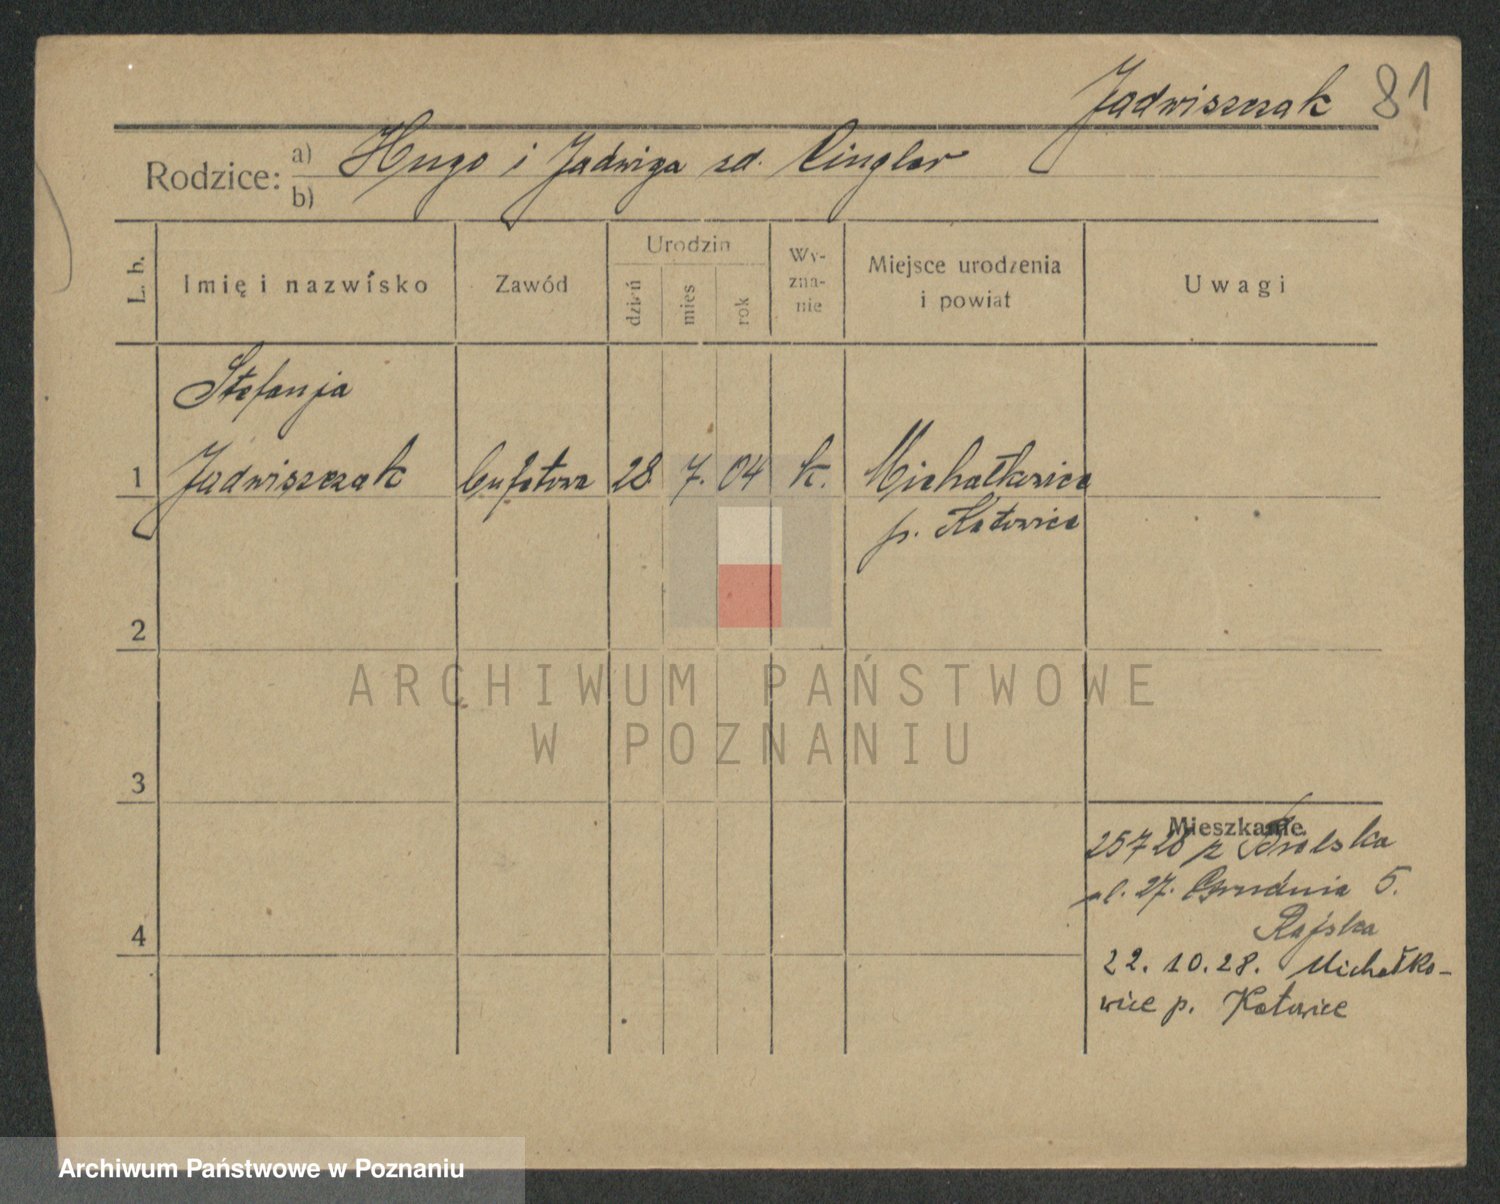 Jadwiszczak 81
Rodzice: a) b) Hugo i Jadwiga zd. Cingler
L. b.
Imię i nazwisko
Zawód
Urodzin
dzień
mies
rok
Wy-
zna-
nie
Miejsce urodzenia
i powiat
Uwagi
Stefanja
1 Jadwiszczak bufetowa 28 7. 04 k. Michałkowice
p. Katowice
2
ARCHIWUM PAŃSTWOWE
W POZNANIU
3
Mieszkanie
25 7 28 z
ul. 27. Grudnia 5.
Rajska
4
22. 10. 28. Michałko-
wice p. Katowice
Archiwum Państwowe w Poznaniu